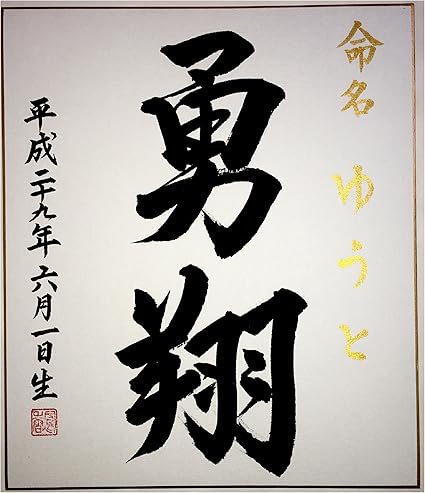 命名 ゆうと
勇翔
平成二十九年六月一日生